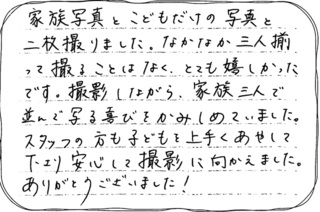 家族写真とこどもだけの写真と
二枚撮りました。なかなか三人揃
って撮ることはなく、とても嬉しかった
です。撮影しながら、家族三人で
並んで写る喜びをかみしめていました。
スタッフの方も子どもを上手くあやして
下さり安心して撮影に向かえました。
ありがとうございました!